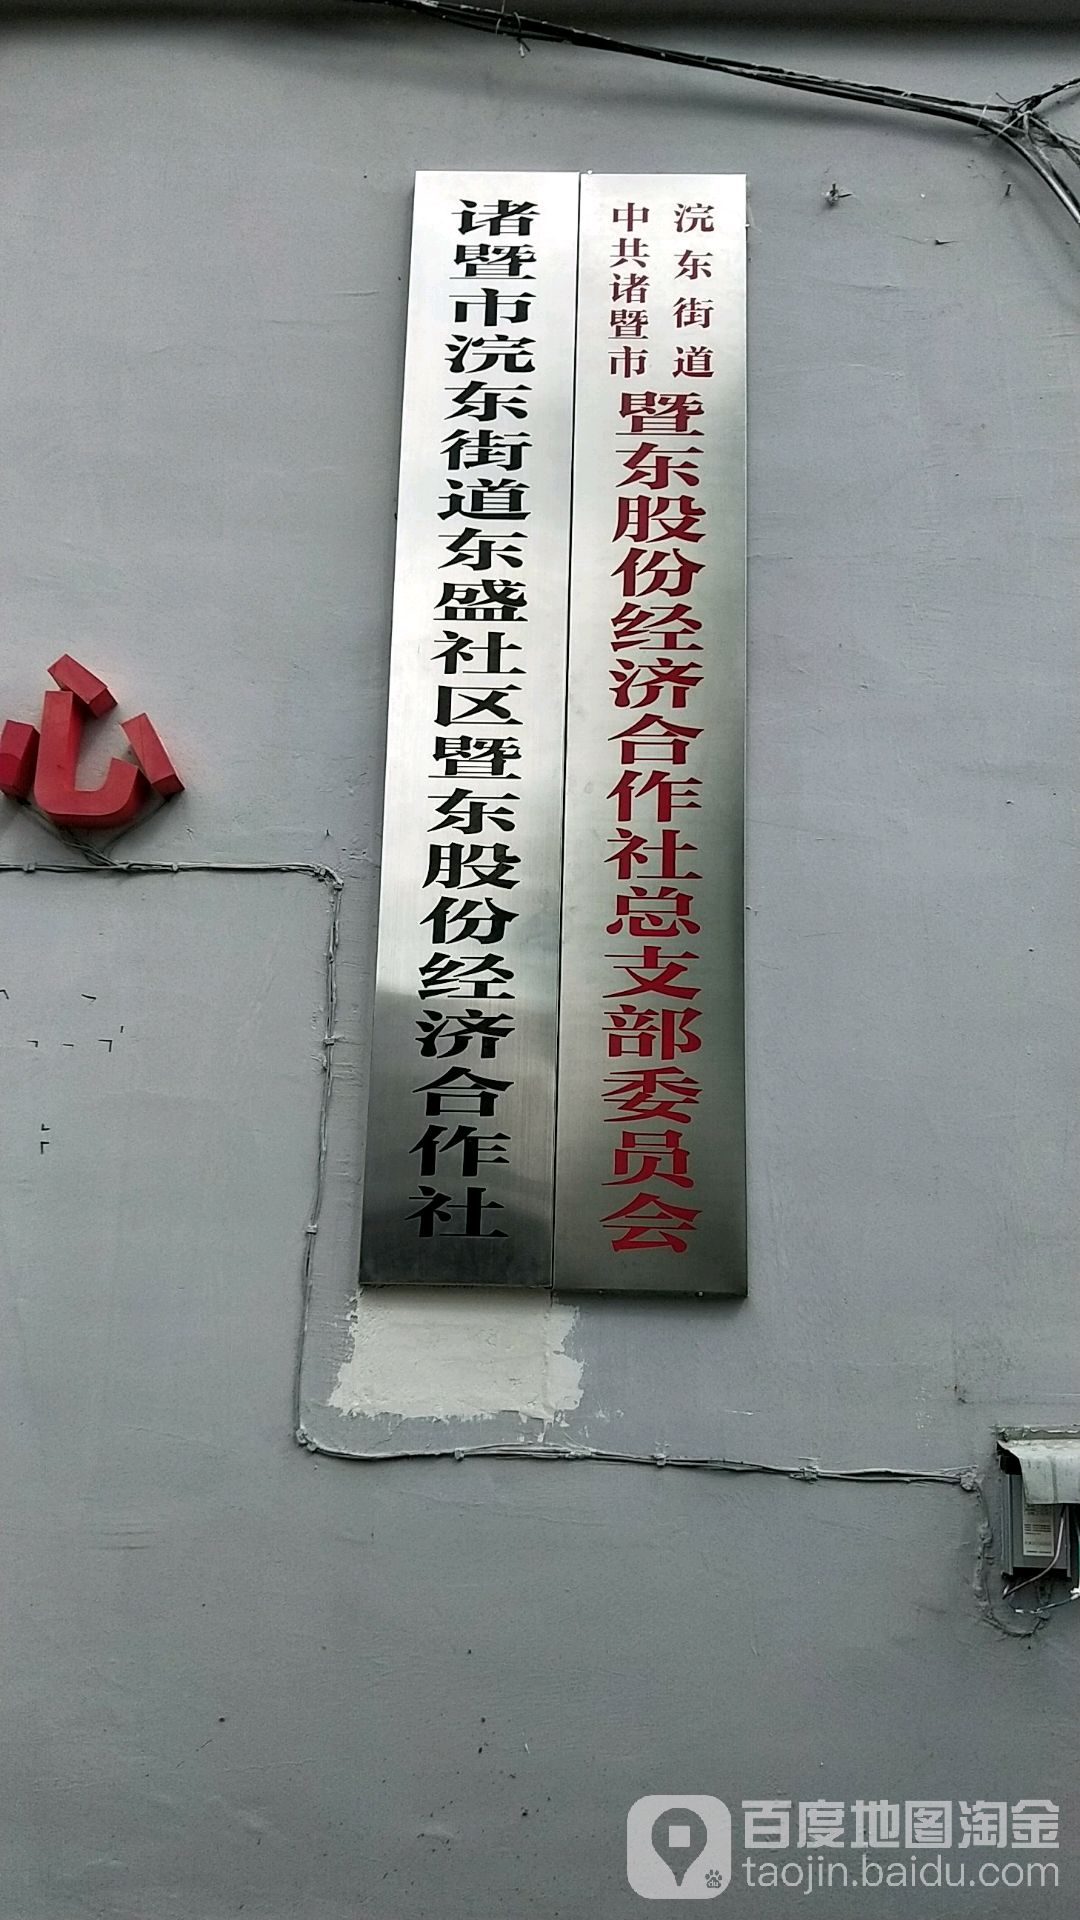 心
诸暨市浣东街道东盛社区暨东股份经济合作社
中共诸暨市
浣东街道
暨东股份经济合作社总支部委员会
百度地图淘金
taojin.baidu.com